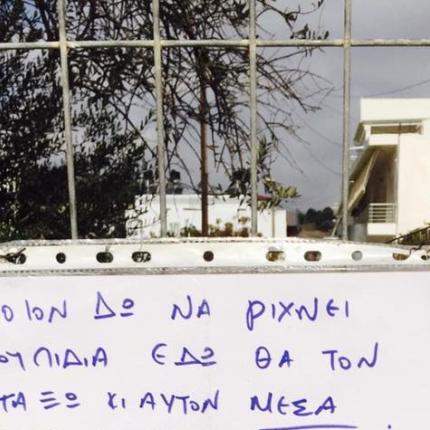 ΟΙΟΝ ΔΩ ΝΑ ΡΙΧΝΕΙ
ΟΥΠΙΔΙΑ ΕΔΩ ΘΑ ΤΟΝ
ΤΑΞΩ ΚΙ ΑΥΤΟΝ ΜΕΣΑ.